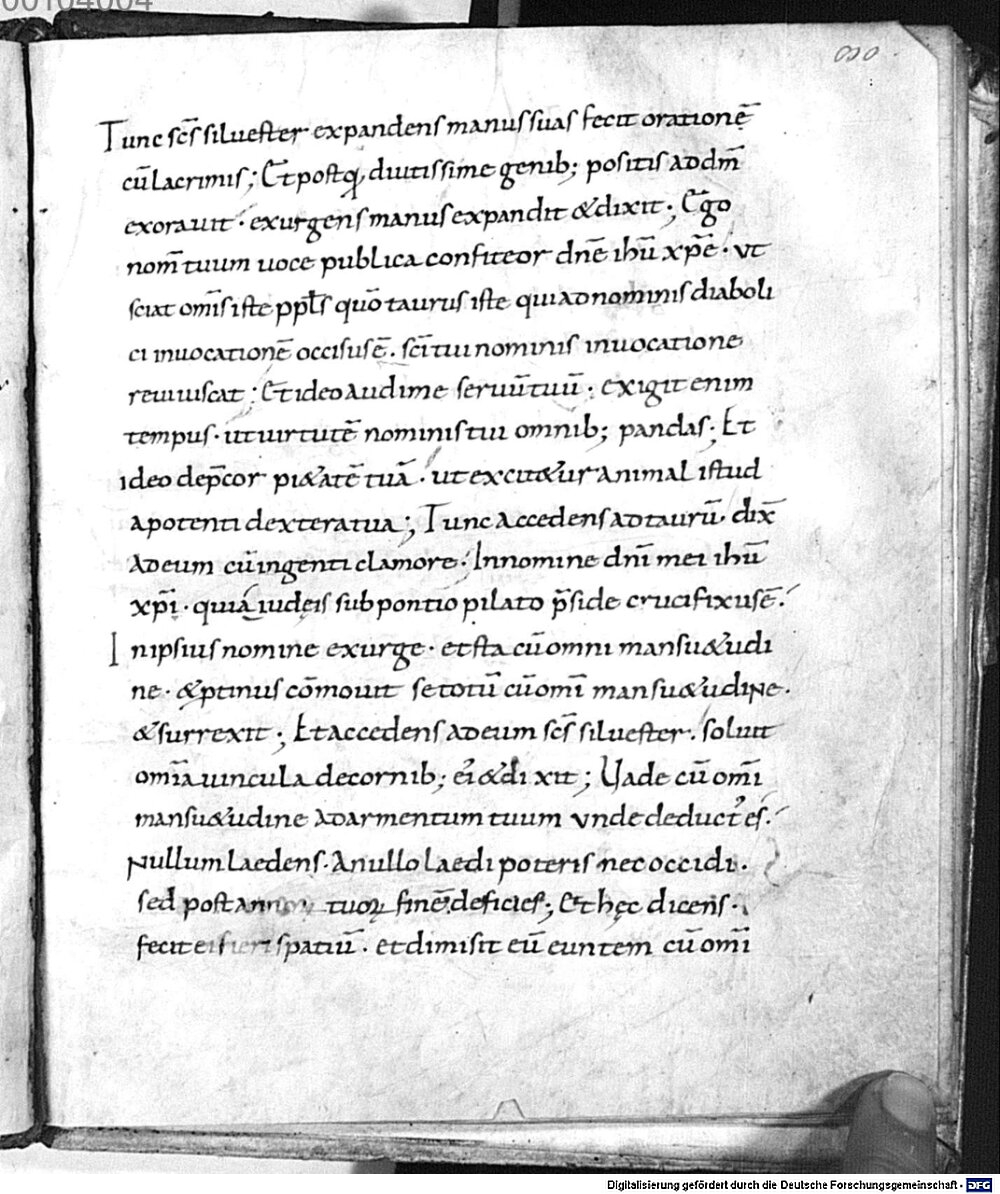 00104004
Tunc scs̄ siluester expandens manus suas fecit orationē
cū lacrimis; Et postq, diutissime genib; positis ad dm̄
exorauit · exurgens manus expandit & dixit; Ego
nom̄ tuum uoce publica confiteor dnē ihū xpē · ut
sciat omīs iste ppłs quō taurus iste qui ad nominis diaboli
ci inuocationē occisus ē. scī tui nominis inuocatione
reuiuiscat; Et ideo audi me seruū tuū; exigit enim
tempus · ut uirtutē nominis tui omnib; pandas; Et
ideo dep̄cor pi&atē tuā · ut excit&ur animal istud
a potenti dextera tua; Tunc accedens ad taurū · dix̄
ad eum cū ingenti clamore · In nomine dnī mei ihū
xpī · quia iudęis sub pontio pilato p̄side crucifixus ē.
In ipsius nomine exurge · et sta cū omni mansu&udi
ne · & ptinus cōmouit se totū cū omī mansu&udine.
& surrexit; Et accedens ad eum scs̄ siluester. soluit
omīa uincula de cornib; eī & di xit; Uade cū omī
mansu&udine ad armentum tuum unde deduct' es.
Nullum laedens · A nullo laedi poteris nec occidi.
sed post tuoꝝ finē deficies; Et hęc dicens.
fecit ei fieri spatiū · et dimisit eū euntem cū omī
Digitalisierung gefördert durch die Deutsche Forschungsgemeinschaft - DFG